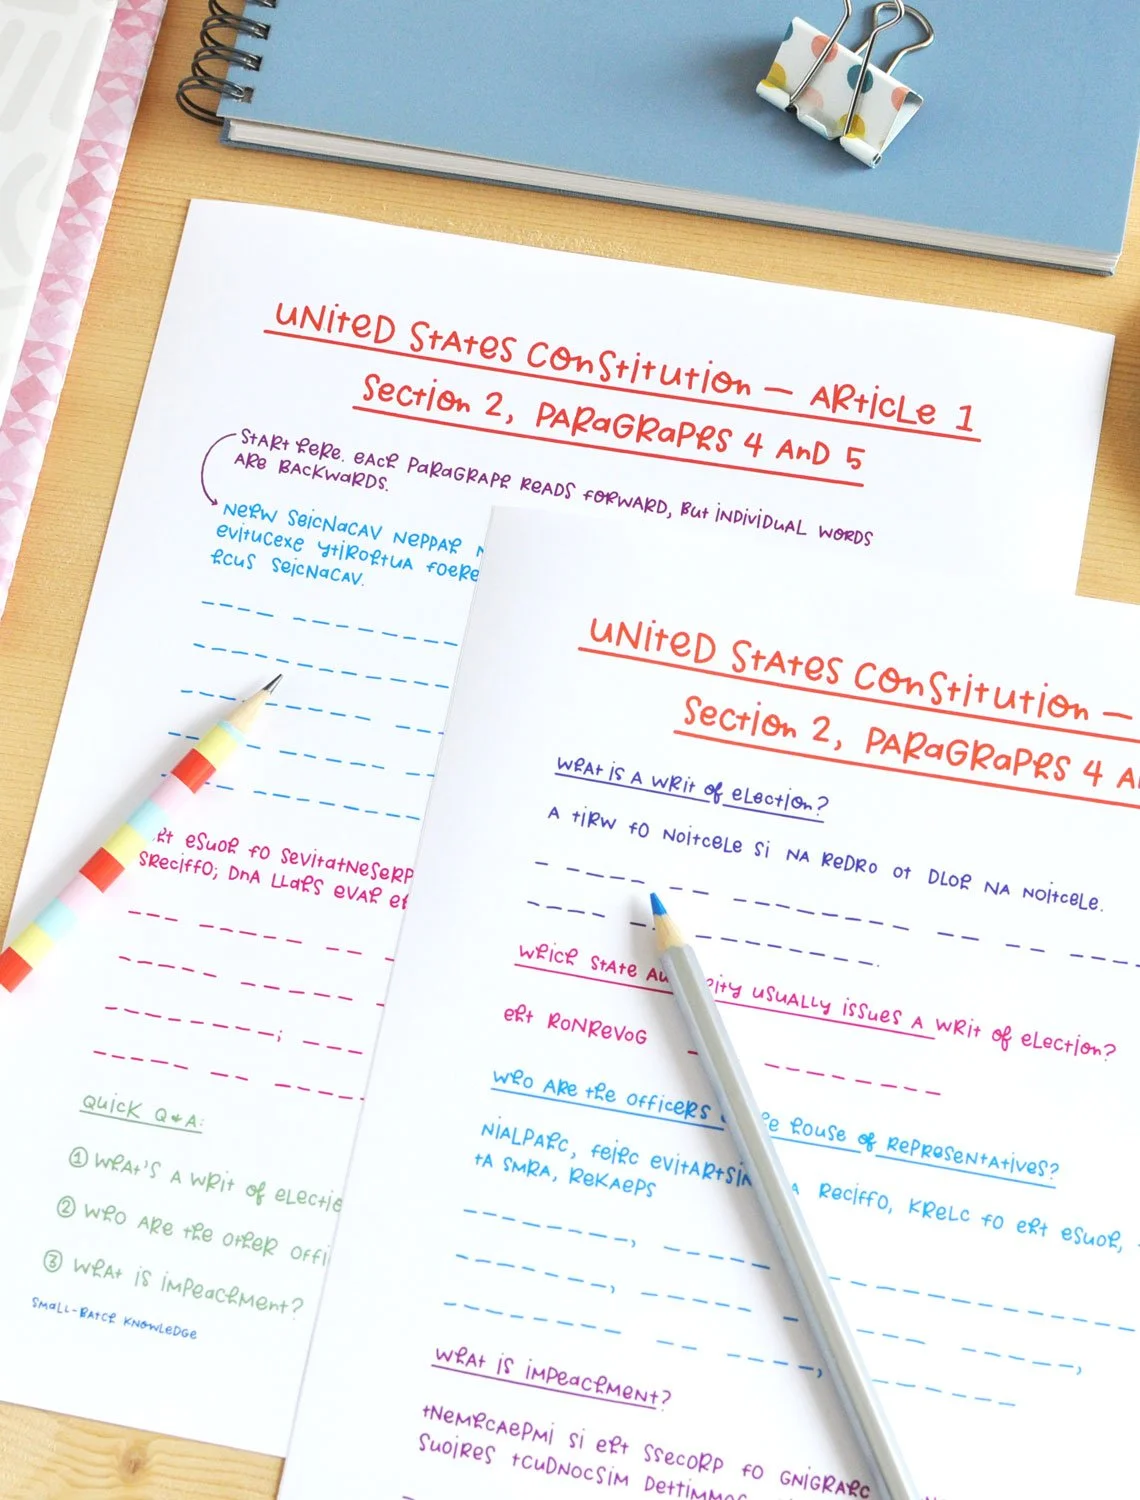 United States Constitution — Article 1
Section 2, Paragraphs 4 and 5
Start here. Each paragraph reads forward, but individual words
are backwards.
nehw seicnacav neppah
evitucexe ytirohtua foere
hcus seicnacav.
eht esuoh fo sevitatneserp
sreciffo; dna llahs evah eh
Quick Q+A:
① What's a writ of electio
② Who are the other offi
③ What is impeachment?
Small-Batch Knowledge
United States Constitution —
Section 2, Paragraphs 4 A
What is a writ of election?
a tirw fo noitcele si na redro ot dloh na noitcele.
Which state au rity usually issues a writ of election?
eht ronrevog
Who are the officers he House of Representatives?
nialpahc, feihc evitartsin a reciffo, krelc fo eht esuoh,
ta smra, rekaeps
What is impeachment?
tnemhcaepmi si eht ssecorp fo gnigrahc
suoires tcudnocsim dettimmoc